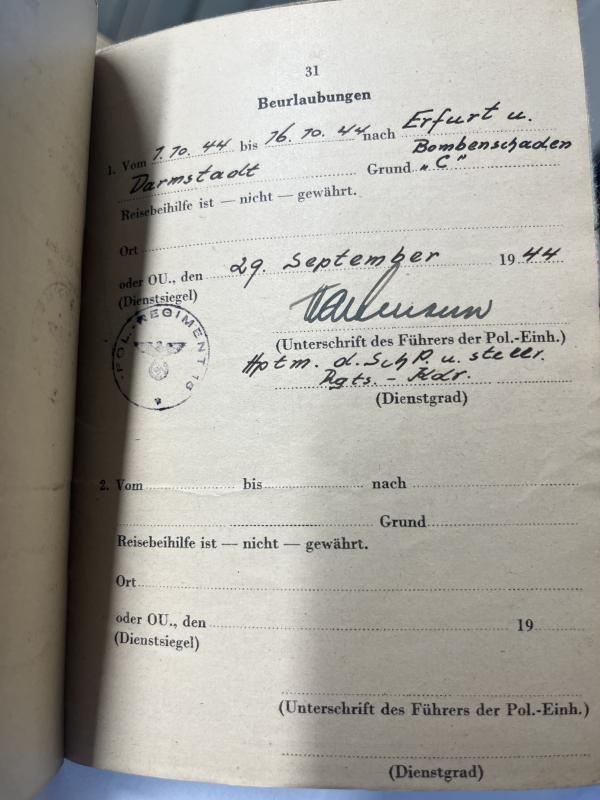 31
Beurlaubungen
1. Vom 7.10.44 bis 16.10.44 nach Erfurt u.
Darmstadt Grund Bombenschaden „C“
Reisebeihilfe ist — nicht — gewährt.
Ort
oder OU., den 29. September 1944
(Dienstsiegel)
POL.-REGIMENT
(Unterschrift des Führers der Pol.-Einh.)
Hptm. d. SchP. u. stellv.
Rgts. - Kdr.
(Dienstgrad)
2. Vom bis nach
Grund
Reisebeihilfe ist — nicht — gewährt.
Ort
oder OU., den 19
(Dienstsiegel)
(Unterschrift des Führers der Pol.-Einh.)
(Dienstgrad)